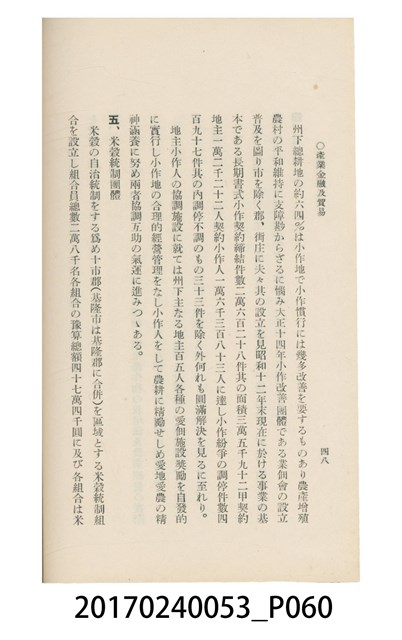 ○產業金融及貿易
四八
州下總耕地の約六四%は小作地で小作慣行には幾多改善を要するものあり農產增殖
農村の平和維持に支障尠からざるに慨み大正十四年小作改善團體である業佃會の設立
普及を圖り市を除く郡、街庄に夫々其の設立を見昭和十二年末現在に於ける事業の基
本である長期書式小作契約締結件數二萬六百二十八件其の面積三萬五千九十二甲契約
地主一萬二千二十二人契約小作人一萬六千三百八十三人に達し小作紛爭の調停件數四
百九十七件其の內調停不調のもの三十三件を除く外何れも圓滿解決を見るに至れり。
地主小作人の協調施設に就ては州下主なる地主百五人各種の愛佃施設獎勵を自發的
に實行し小作地の合理的經營管理をなし小作人をして農耕に精勵せしめ愛地愛農の精
神涵養に努め兩者協調互助の氣運に進みつゝある。
五、米穀統制團體
米穀の自治統制をする爲め十市郡(基隆市は基隆郡に合併)を區域とする米穀統制組
合を設立し組合員總數二萬八千名各組合の豫算總額四十七萬四千圓に及び各組合は米
20170240053_P060